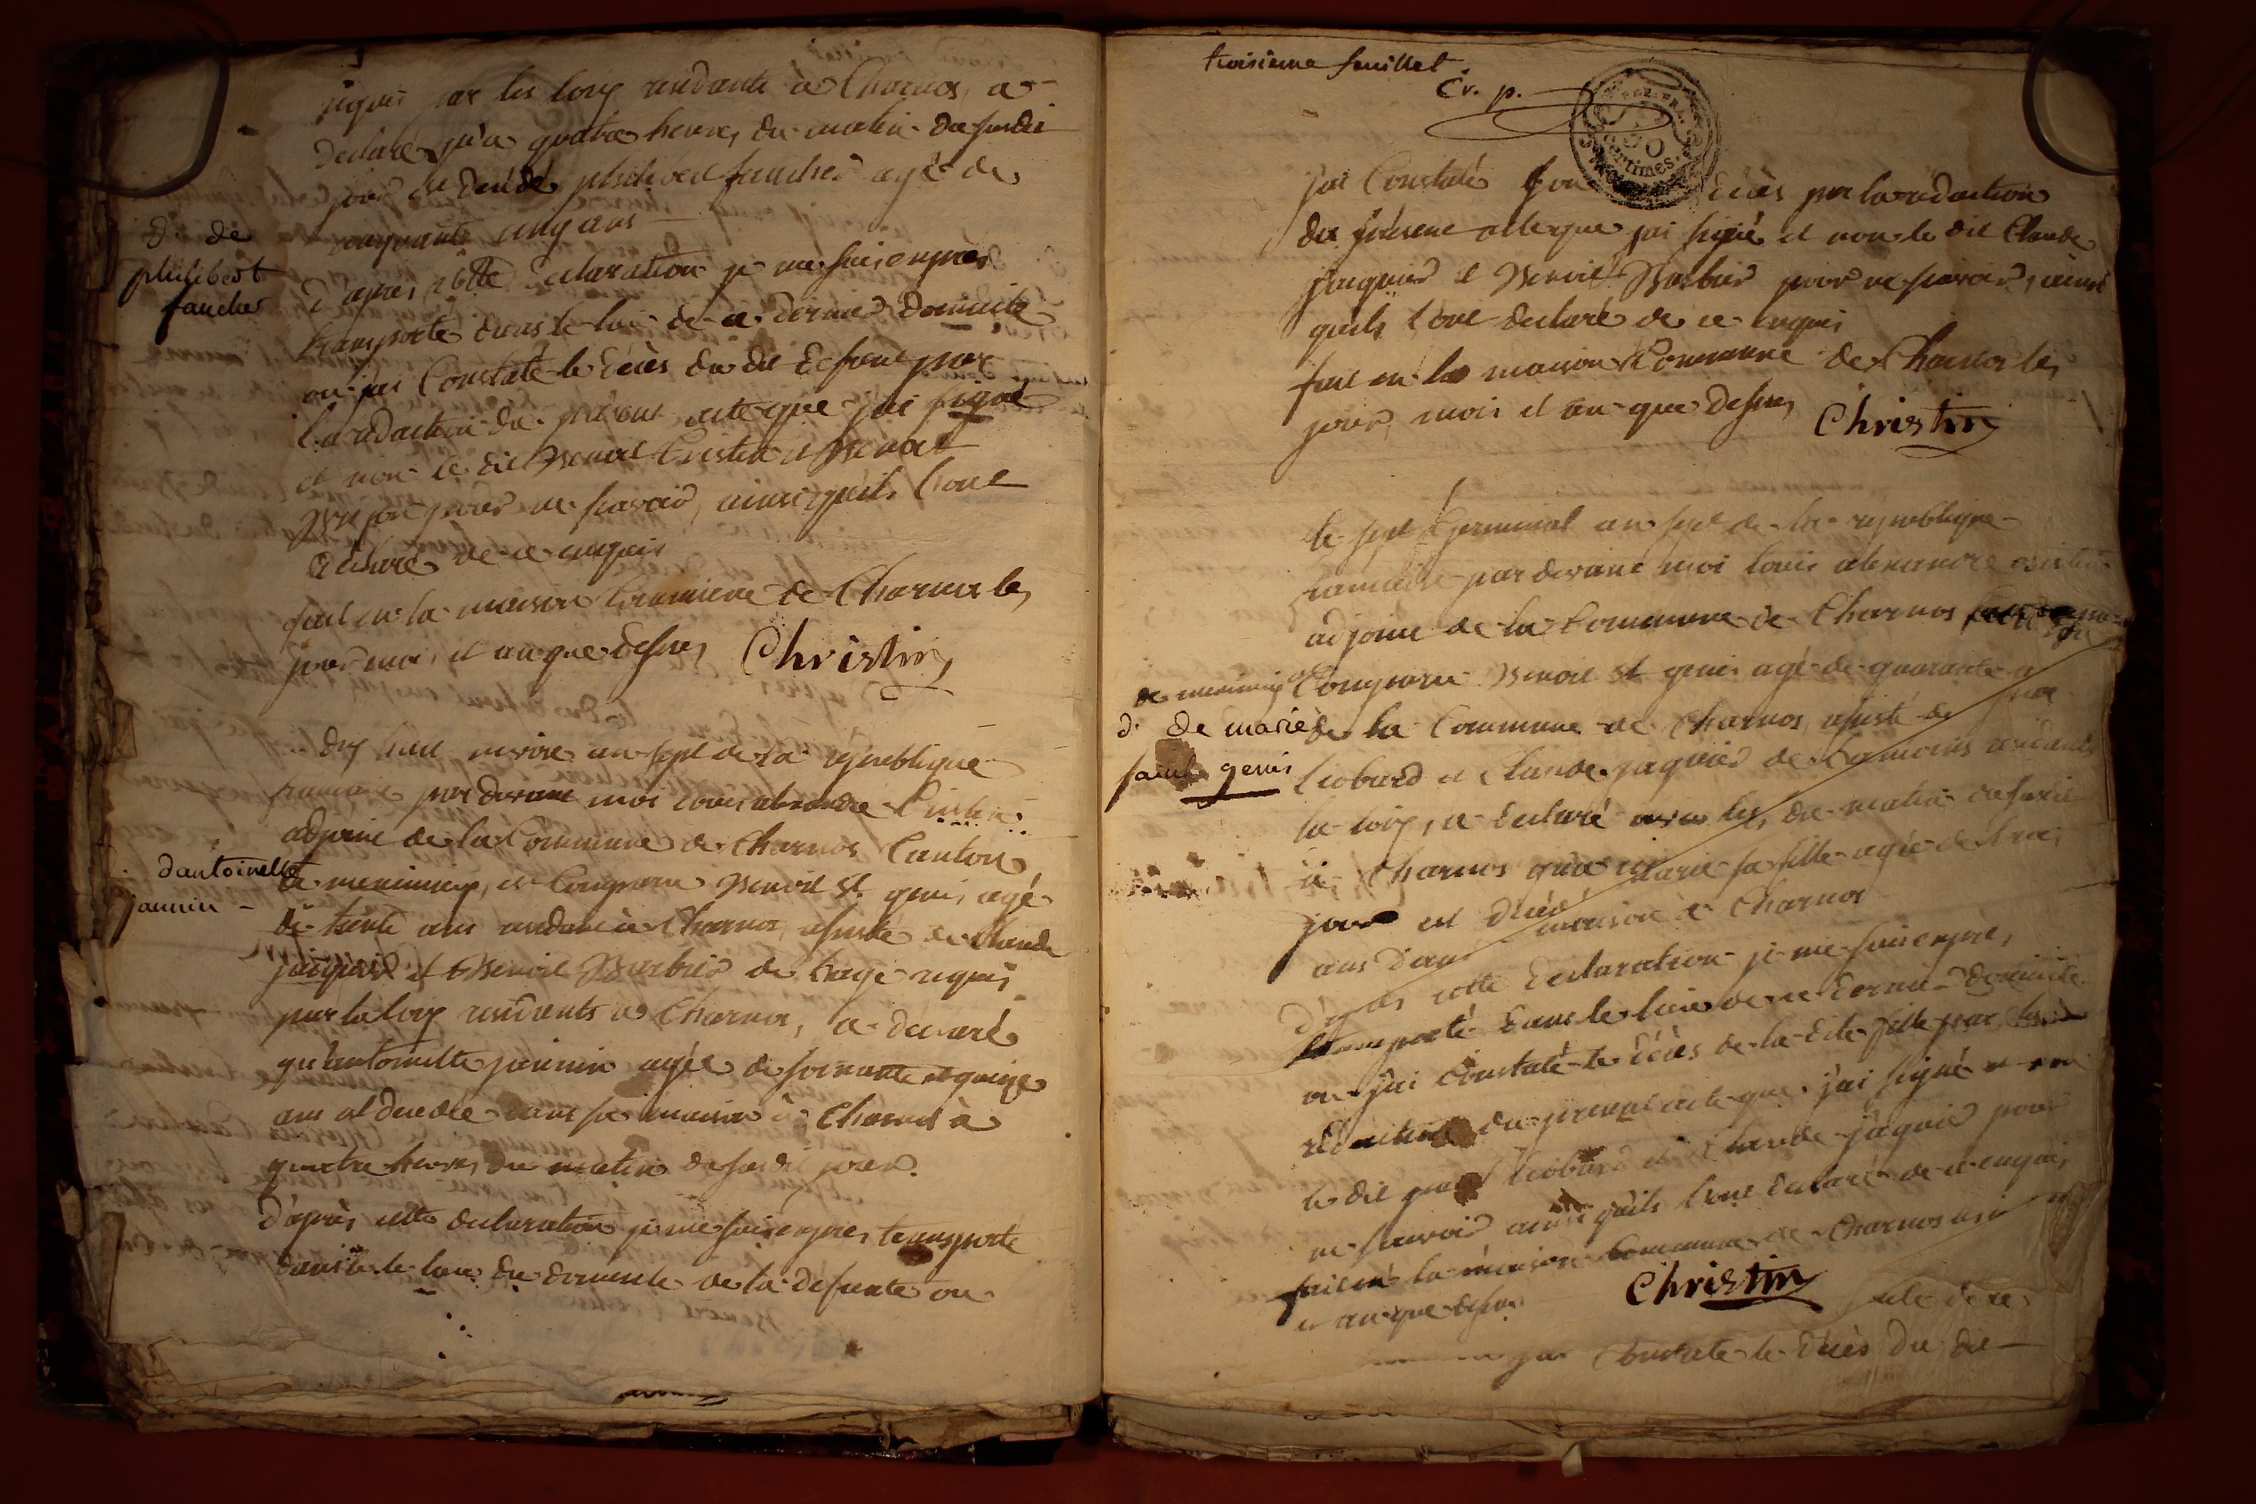 requis par les loix residants à Charnos, a
declaré qu'a quatre heures du matin du susdit
jour est décédé philibert faucher agé de
cinquante cinq ans
d. de
philibert
faucher
d'apres cette declaration je me suis expres
transporté dans le lieu de ce dernier domicile
ou j'ai Constaté le décès du dit defunt par
la redaction du présent acte que j'ai signé
et non le dit Benoit Cristin et Benoit
pour ne scavoir, ainsi qu'ils l'ont
declaré de ce enquis
fait en la maison Commune de Charnos les
jour mois et an que dessus Christin
dix huit nivose an sept de la republique
francaise par devant moi louis alexandre Cristin
adjoint de la Commune de Charnos Canton
d'antoinette
jannin
de meximieux, est Comparu Benoit St genis agé
de trente ans residant à Charnos, assisté de Claude
jacquier et Benoit Barbier de l'age requis
par la loix residents à Charnos, a declaré
qu'antoinette jannin agée de soixante et quinze
ans est decedée dans sa maison à Charnos à
quatre heures du matin du susdit jour.
d'après cette declaration je me suis expres transporté
dans le lieu du domicile de la defunte ou
troisieme feuillet
Cr. p.
centimes
j'ai Constaté son décès par la redaction
du présent acte que j'ai signé et non le dit Claude
jacquier et Benoit Barbier pour ne scavoir, ainsi
qu'ils l'ont declaré de ce enquis
fait en la maison Commune de Charnos les
jour, mois et an que dessus Christin
le sept germinal an sept de la republique
francaise par devant moi louis alexandre cristin
adjoint de la Commune de Charnos
de meximieux Comparu Benoit St genis agé de quarante
d. de marie
saint genis
de la Commune de Charnos, assisté de
liobard et Claude jaquier de residants
la loix, a declaré du matin du susdit
à Charnos qu'a marie sa fille agée de trois
jour est décédé maison à Charnos
ans dans
d'apres cette declaration je me suis expres,
transporté dans le lieu de ce dernier domicile
ou j'ai constaté le décès de la dite fille par la
redaction du present acte que j'ai signé et non
le dit liobard et Claude jaquier pour
ne scavoir ainsi qu'ils l'ont declaré de ce enquis
fait en la maison commune de Charnos
et an que dessus Christin
Constaté le décès du dit